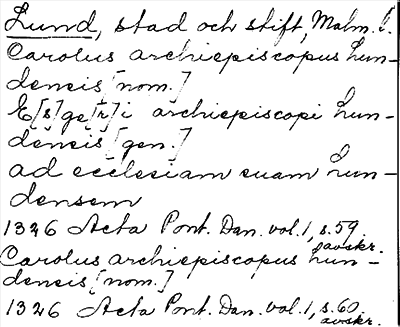 Lund, stad och stift, Malm. l.
Carolus archiepiscopus Lun-
densis [nom.]
E[s]ge[r]i archiepiscopi Lun-
densis [gen.]
ad ecclesiam suam Lun-
densem
1326 Acta Pont. Dan. vol. 1, s. 59.
avskr.
Carolus archiepiscopus Lun-
densis [nom.]
1326 Acta Pont. Dan. vol. 1, s. 60
avskr.